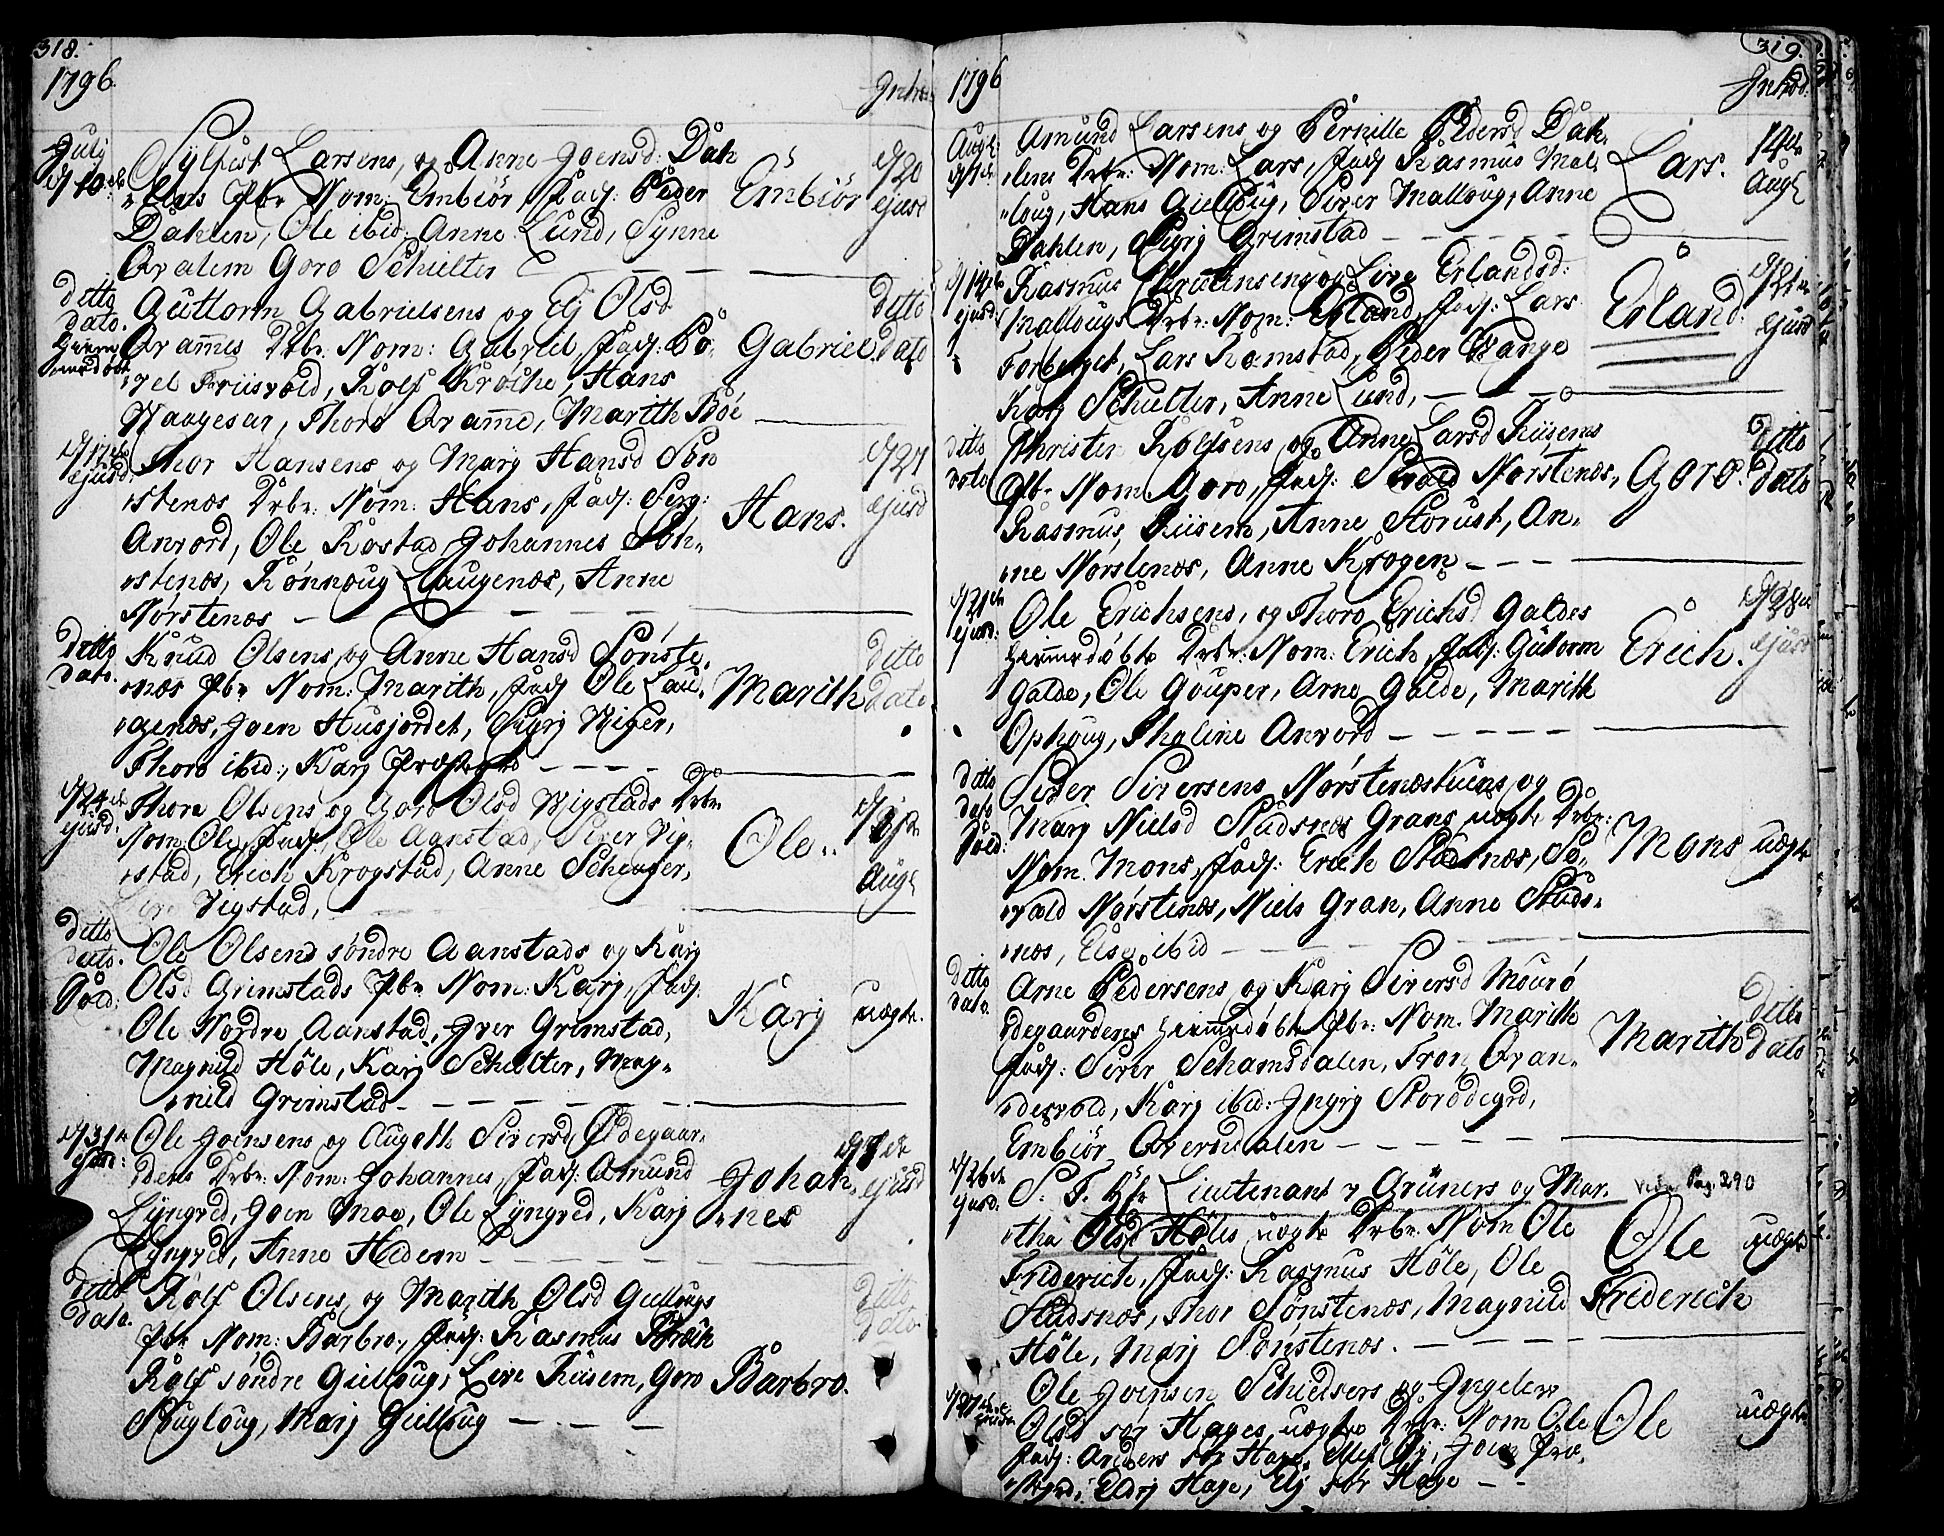 318.
1796.
Introd
July
d/10de
Sylfest Larsens, og Anne Joensd: Dah
"lens Pbr Nom: Embiör, Fadj: Peder
Dahlen, Ole ibid: Anne Lund, Synne
Qvalem Goro Schielter
Embiör
d/20
ejusd
ditto
dato.
Guttorm Gabrielsens og Elj Olsd
Qvames Drbr. Nom: Gabriel, Fadj: Bö-
"yel Friisvold, Rolf Kroche, Hans
Waagesar, Thoro Qvame, Marith Böe
Gabriel
ditto
dato
d/17de
ejusd
Thor Hansens og Marj Hansd Sön
"stenæs Drbr: Nom: Hans, Fadj:
Anvord, Ole Rostad Johannes Sön-
"stenæs, Rönnoug Laugenæs, Anne
Nörstenæs
Hans.
d/27
ejusd
ditto
dato.
Knud Olsens, og Anne Hansd Sönste-
"næs Pbr Nom: Marith, Fadj Ole Lau-
"genæs, Joen Husjordet, Sigrj Wiger,
Thoro ibid:, Karj Præstegrd
Marith
ditto
dato
d/24de
ejusd.
Thore Olsens og Goro Olsd Wigstads Drbr
Nom: Ole, Fadj: Ole Aanstad, Siver Vig-
"stad, Erich Krogstad, Anne
Vigstad,
Ole..
Augl
ditto
dato.
Ole Olsens söndre Aanstads og Karj
Olsd Grimstads Pbr Nom: Karj, Fadj:
Ole Nordre Aanstad, Iver Grimstad,
Magnild Höle, Karj Schielter, Mag-
"nild Grimstad
Karj
uægte.
d/31te
ejusd:
Ole Joensens og Augotte Siversd Ödegaar-
"dens Drbr: Nom: Johannes, Fadj: Amund
Lyngved, Joen Moe, Ole Lyngved, Karj
Lyngved, Anne Hedem
Johan-
"nes
d/7de
ejusd
ditto
dato.
Rolf Olsens, og Marith Olsd Giellougs
Pbr Nom: Barbro., Fadj: Rasmus
Rolf söndre Gielloug, Live Kiisem, Goro
Skugloug, Marj Gielloug
Barbro.
319.
1796
Introd.
Augl:
d/7de
Amund Larsens og Pernille Pedersd Dah-
"lens Drbr: Nom: Lars, Fadj Rasmus Mal-
"loug, Hans Gielloug, Siver Malloug, Anne
Dahlen, Sigrj Grimstad
Lars.
14de
Augl
d/14de
ejusd:
Rasmus Christensens og Live Erlandsd:
Mallougs Drbr: Nom: Erland, Fadj: Lars
Forberget, Lars Ramstad, Peder Wange
Karj Schielter, Anne Lund,
Erland.
d/21de
ejusd
ditto
dato
Christen Rolfsens og Anne Larsd Kiisems
Pbr Nom Goro, Fadj: Sivald Nörstenæs,
Rasmus, Kiisem, Anne Storust, An-
"ne Nörstenæs, Anne Krogen
Goro.
ditto
dato
d/21de
ejusd:
Ole Erichsens, og Thoro Erichsd Galdes
hiemmedöbte Drbr: Nom: Erich, Fadj: Gutorm
Galde, Ole Gouper, Arne Galde, Marith
Ophoug, Thaline Anvord
Erich.
d/28de
ejusd
ditto
dato
Siver Siversens Nörstenæs og
Marj Nielsd Studsnæs Grans uægte Drbr:
Nom. Mons, Fadj: Erich Studsnæs, Si-
"vald Nörstenæs, Niels Gran, Anne Studs-
"næs, Else ibid
Mons
uægte
ditto
dato.
Arne Pedersens og Karj Siversd Mourö
"degaardens hiemmedöbte Pbr: Nom. Marith
Fadj: Siver Schamsdalen, Tron Qvan-
"desvold, Karj ibid: Ingrj Storödegrd,
Embiör Qversdalen
Marith
ditto
dato
d/26de
ejusd.
S. T. Hr Lieutenant v Grüners og Mar-
"tha Olsd Höles uægte Drbr. Nom Ole
Friderich, Fadj: Rasmus Höle, Ole
Studsnæs, Thor Sönstenæs, Magnild
Höle, Marj Sönstenæs.
Vide Pag: 290
Ole
Friderich
uægte
Ole Joensen og Ingelev
Olsd sör Hages uægte Drbr: Nom Ole
Fadj: Anders sör Hage, Joen Præ-
"stgrd, Eldrj Hage, Elj sör Hage
Ole
uægte